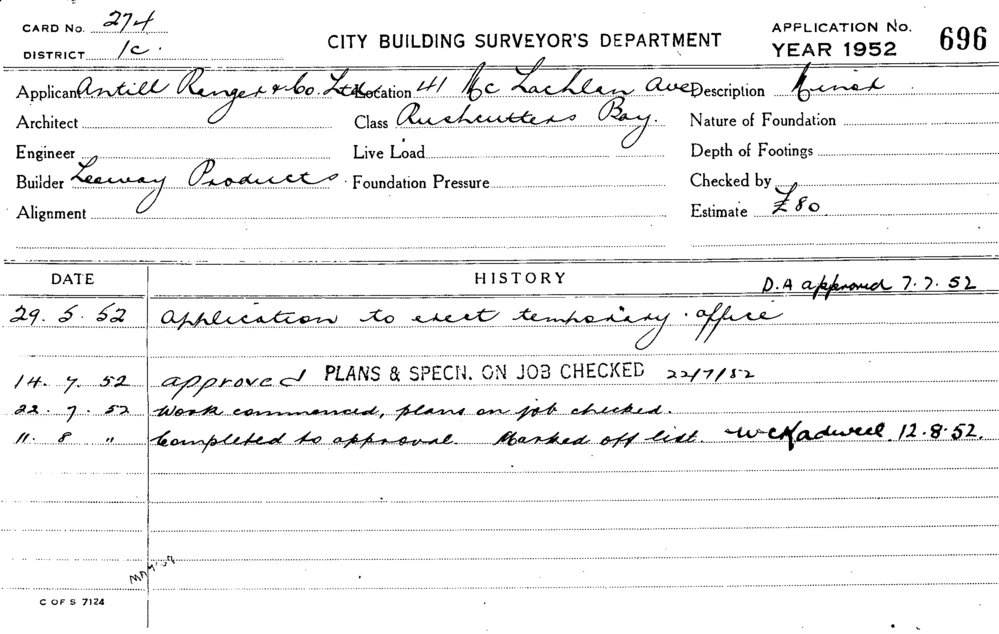 CARD No. 274
DISTRICT 1c.
CITY BUILDING SURVEYOR'S DEPARTMENT
APPLICATION No.
YEAR 1952
696
Applicant Antill Ranger & Co. Ltd. Location 41 Mc Lachlan Ave Description Minor
Architect Class Rushcutters Bay. Nature of Foundation
Engineer Live Load Depth of Footings
Builder Leeway Products. Foundation Pressure Checked by
Alignment Estimate £80
DATE HISTORY D.A approved 7.7.52
29.5.52 Application to erect temporary office
14.7.52 approved PLANS & SPECN. ON JOB CHECKED 22/7/52
22.7.52 Work commenced, plans on job checked.
11.8 " Completed to approval. Marked off list. 12.8.52.
C OF S 7124